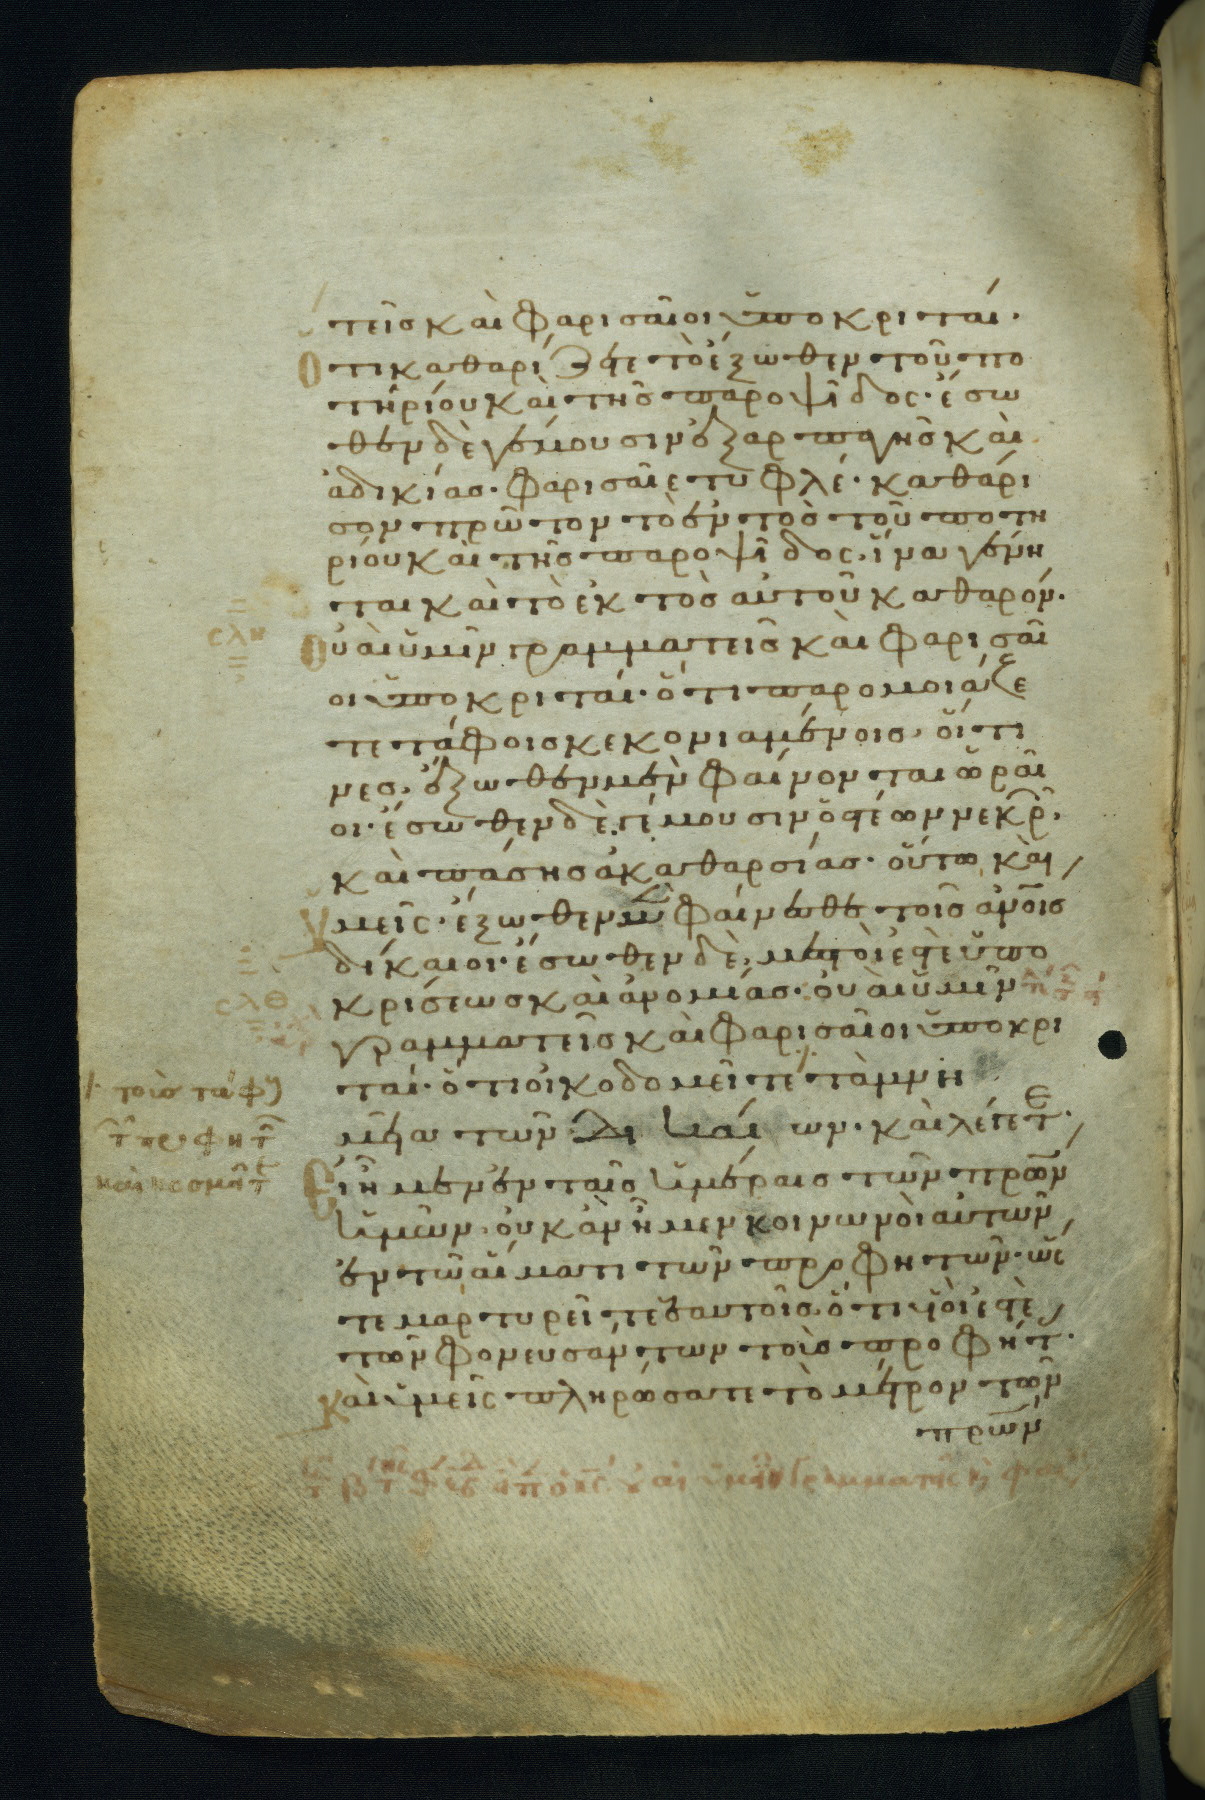 τεῖς καὶ Φαρισαῖοι ὑποκριταί·
Ὅτι καθαρίζετε τὸ ἔξωθεν τοῦ πο
τηρίου καὶ τῆς παροψίδος· ἔσω
θεν δὲ γέμουσιν ἐξ ἁρπαγῆς καὶ
ἀδικίας· Φαρισαῖε τυφλέ· καθάρι
σον πρῶτον τὸ ἐντὸς τοῦ ποτη
ρίου καὶ τῆς παροψίδος· ἵνα γένη
ται καὶ τὸ ἐκτὸς αὐτοῦ καθαρόν·
σλη
Οὐαὶ ὑμῖν γραμματεῖς καὶ Φαρισαῖ
οι ὑποκριταί· ὅτι παρομοιάζε
τε τάφοις κεκονιαμένοις· οἵτι
νες· ἔξωθεν μὲν φαίνονται ὡραῖ
οι· ἔσωθεν δὲ γέμουσιν ὀστέων νεκρ·
καὶ πάσης ἀκαθαρσίας· οὕτω καὶ
ὑμεῖς· ἔξωθεν μὲν φαίνεσθε τοῖς ἀνοις
δίκαιοι· ἔσωθεν δὲ μεστοί ἐστε ὑπο
σλθ
κρίσεως καὶ ἀνομίας· οὐαὶ ὑμῖν
γραμματεῖς καὶ Φαρισαῖοι ὑποκρι
ταί· ὅτι οἰκοδομεῖτε τὰ μνη
τοὺς τάφους
τ προφητ
καὶ κοσμεῖτ
μεῖα τῶν δικαίων· καὶ λέγετ·
Εἰ ἦμεν ἐν ταῖς ἡμέραις τῶν πρων
ἡμῶν· οὐκ ἂν ἦμεν κοινωνοὶ αὐτῶν
ἐν τῷ αἵματι τῶν προφητῶν· ὥς
τε μαρτυρεῖτε ἑαυτοῖς· ὅτι υἱοί ἐστε
τῶν φονευσάντων τοὺς προφήτ·
καὶ ὑμεῖς πληρώσατε τὸ μέτρον τῶν
πρων
οὐαὶ ὑμῖν γραμματεῖς καὶ φαρ